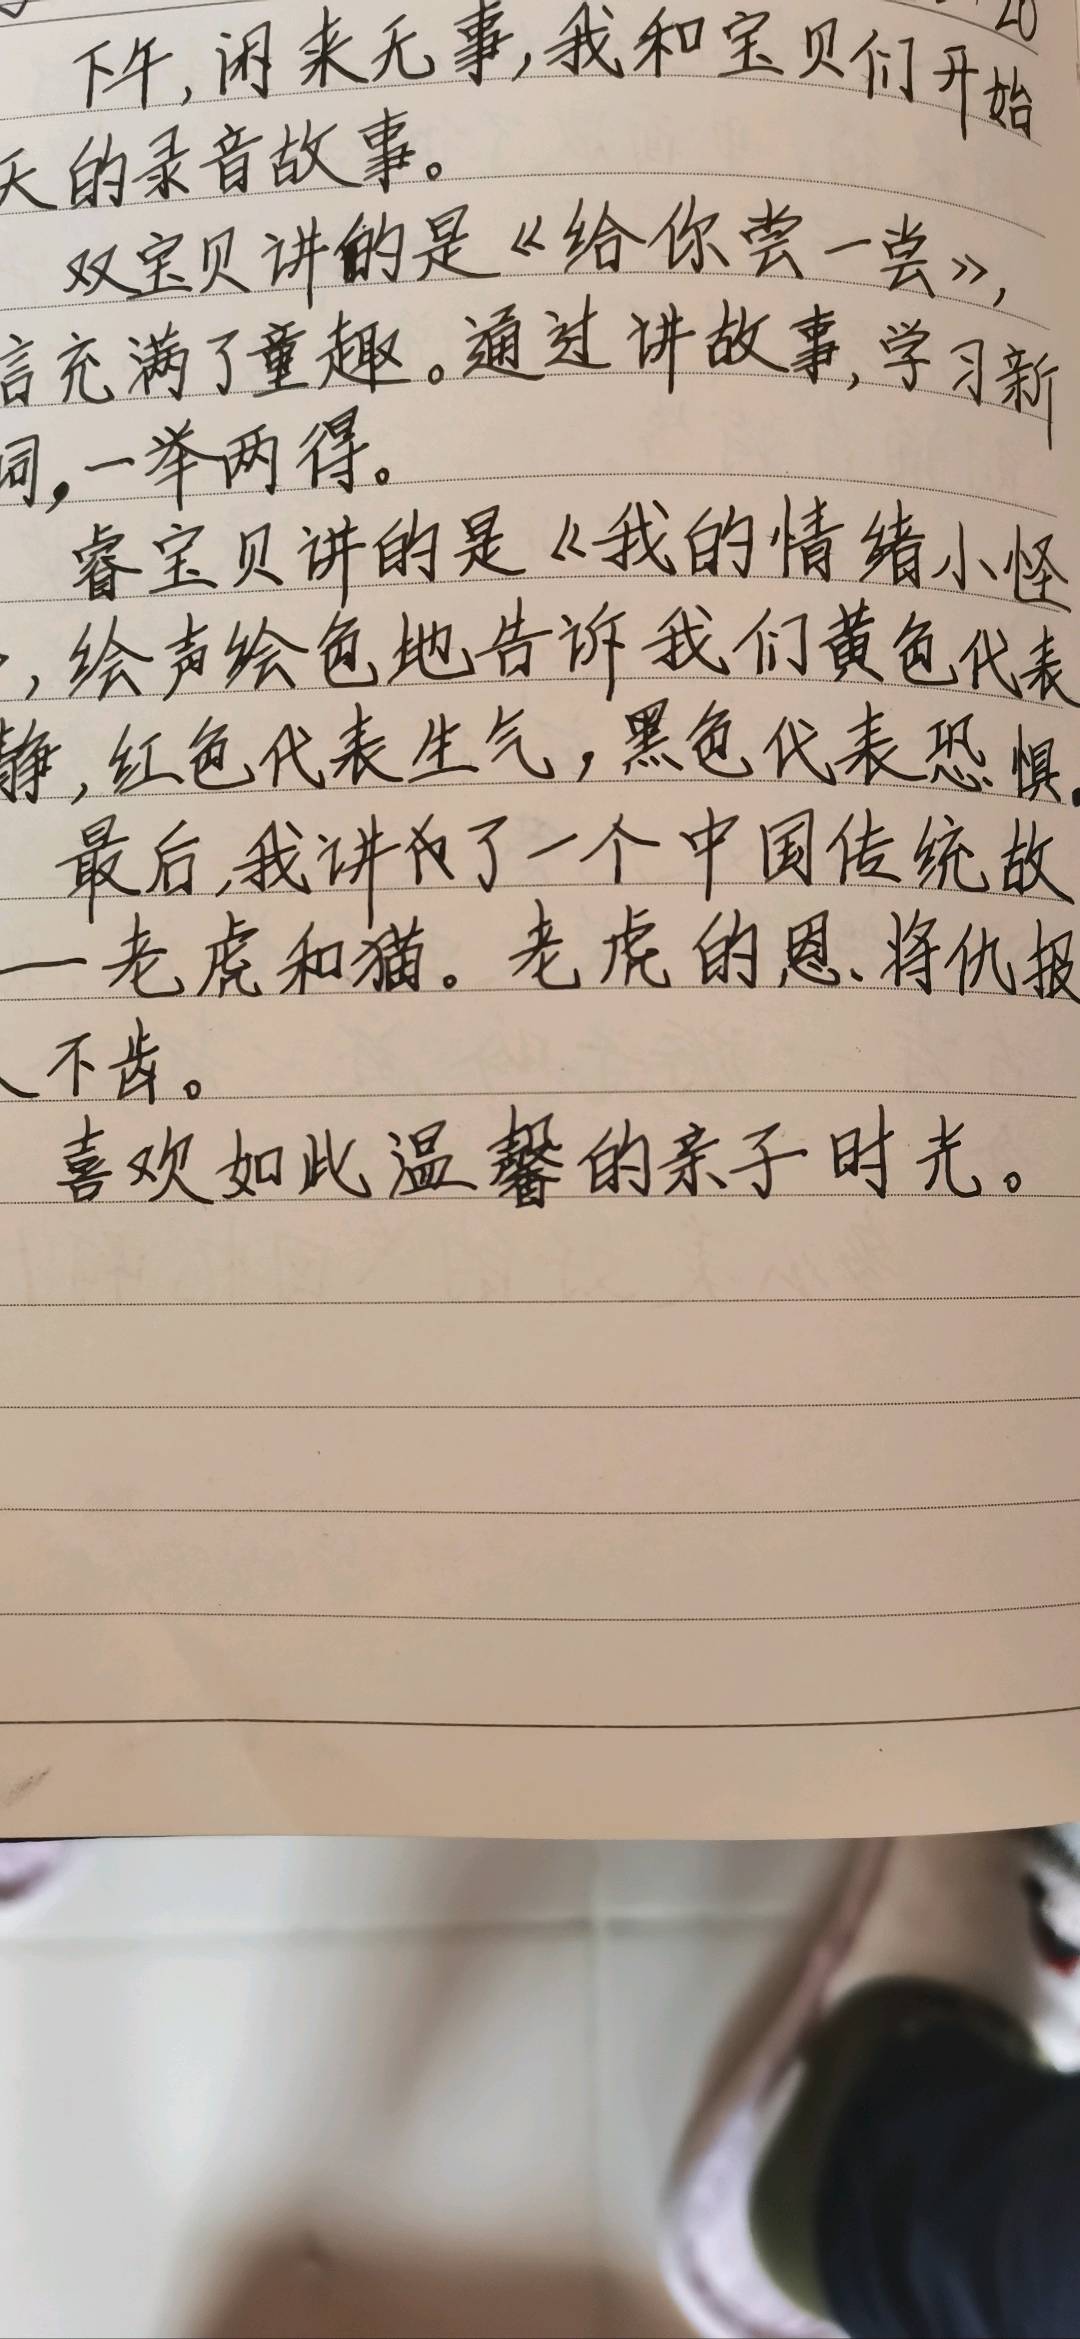 20
下午,闲来无事,我和宝贝们开始
天的录音故事。
双宝贝讲的是《给你尝一尝》,
言充满了童趣。通过讲故事,学习新
词,一举两得。
睿宝贝讲的是《我的情绪小怪
,绘声绘色地告诉我们黄色代表
静,红色代表生气,黑色代表恐惧.
最后,我讲了一个中国传统故
—老虎和猫。老虎的恩将仇报
人不齿。
喜欢如此温馨的亲子时光。